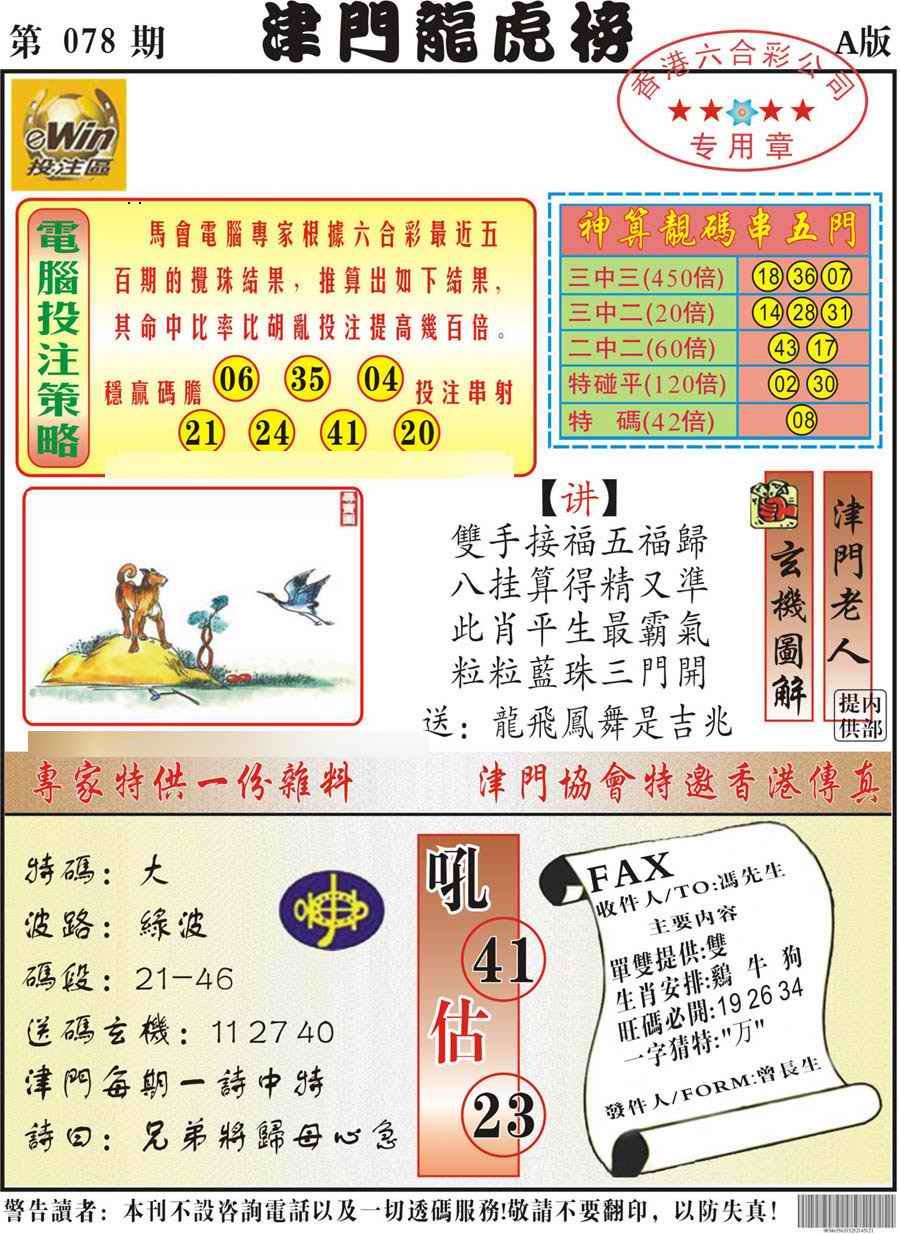 第 078 期
津門龍虎榜
A版
香港六合彩公司
专用章
eWin
投注區
電腦投注策略
馬會電腦專家根據六合彩最近五
百期的攪珠結果，推算出如下結果，
其命中比率比胡亂投注提高幾百倍。
穩贏碼膽 06 35 04 投注串射
21 24 41 20
神算靚碼串五門
三中三(450倍) 18 36 07
三中二(20倍) 14 28 31
二中二(60倍) 43 17
特碰平(120倍) 02 30
特 碼(42倍) 08
【讲】
雙手接福五福歸
八挂算得精又準
此肖平生最霸氣
粒粒藍珠三門開
送：龍飛鳳舞是吉兆
玄機圖解
津門老人
内部提供
專家特供一份雜料
津門協會特邀香港傳真
特碼：大
波路：綠波
碼段：21—46
送碼玄機：11 27 40
津門每期一詩中特
詩曰：兄弟將歸母心急
吼
41
估
23
FAX
收件人/TO:馮先生
主要内容
單雙提供:雙
生肖安排:鷄 牛 狗
旺碼必開:19 26 34
一字猜特:"万"
發件人/FORM:曾長生
警告讀者：本刊不設咨詢電話以及一切透碼服務!敬請不要翻印，以防失真！